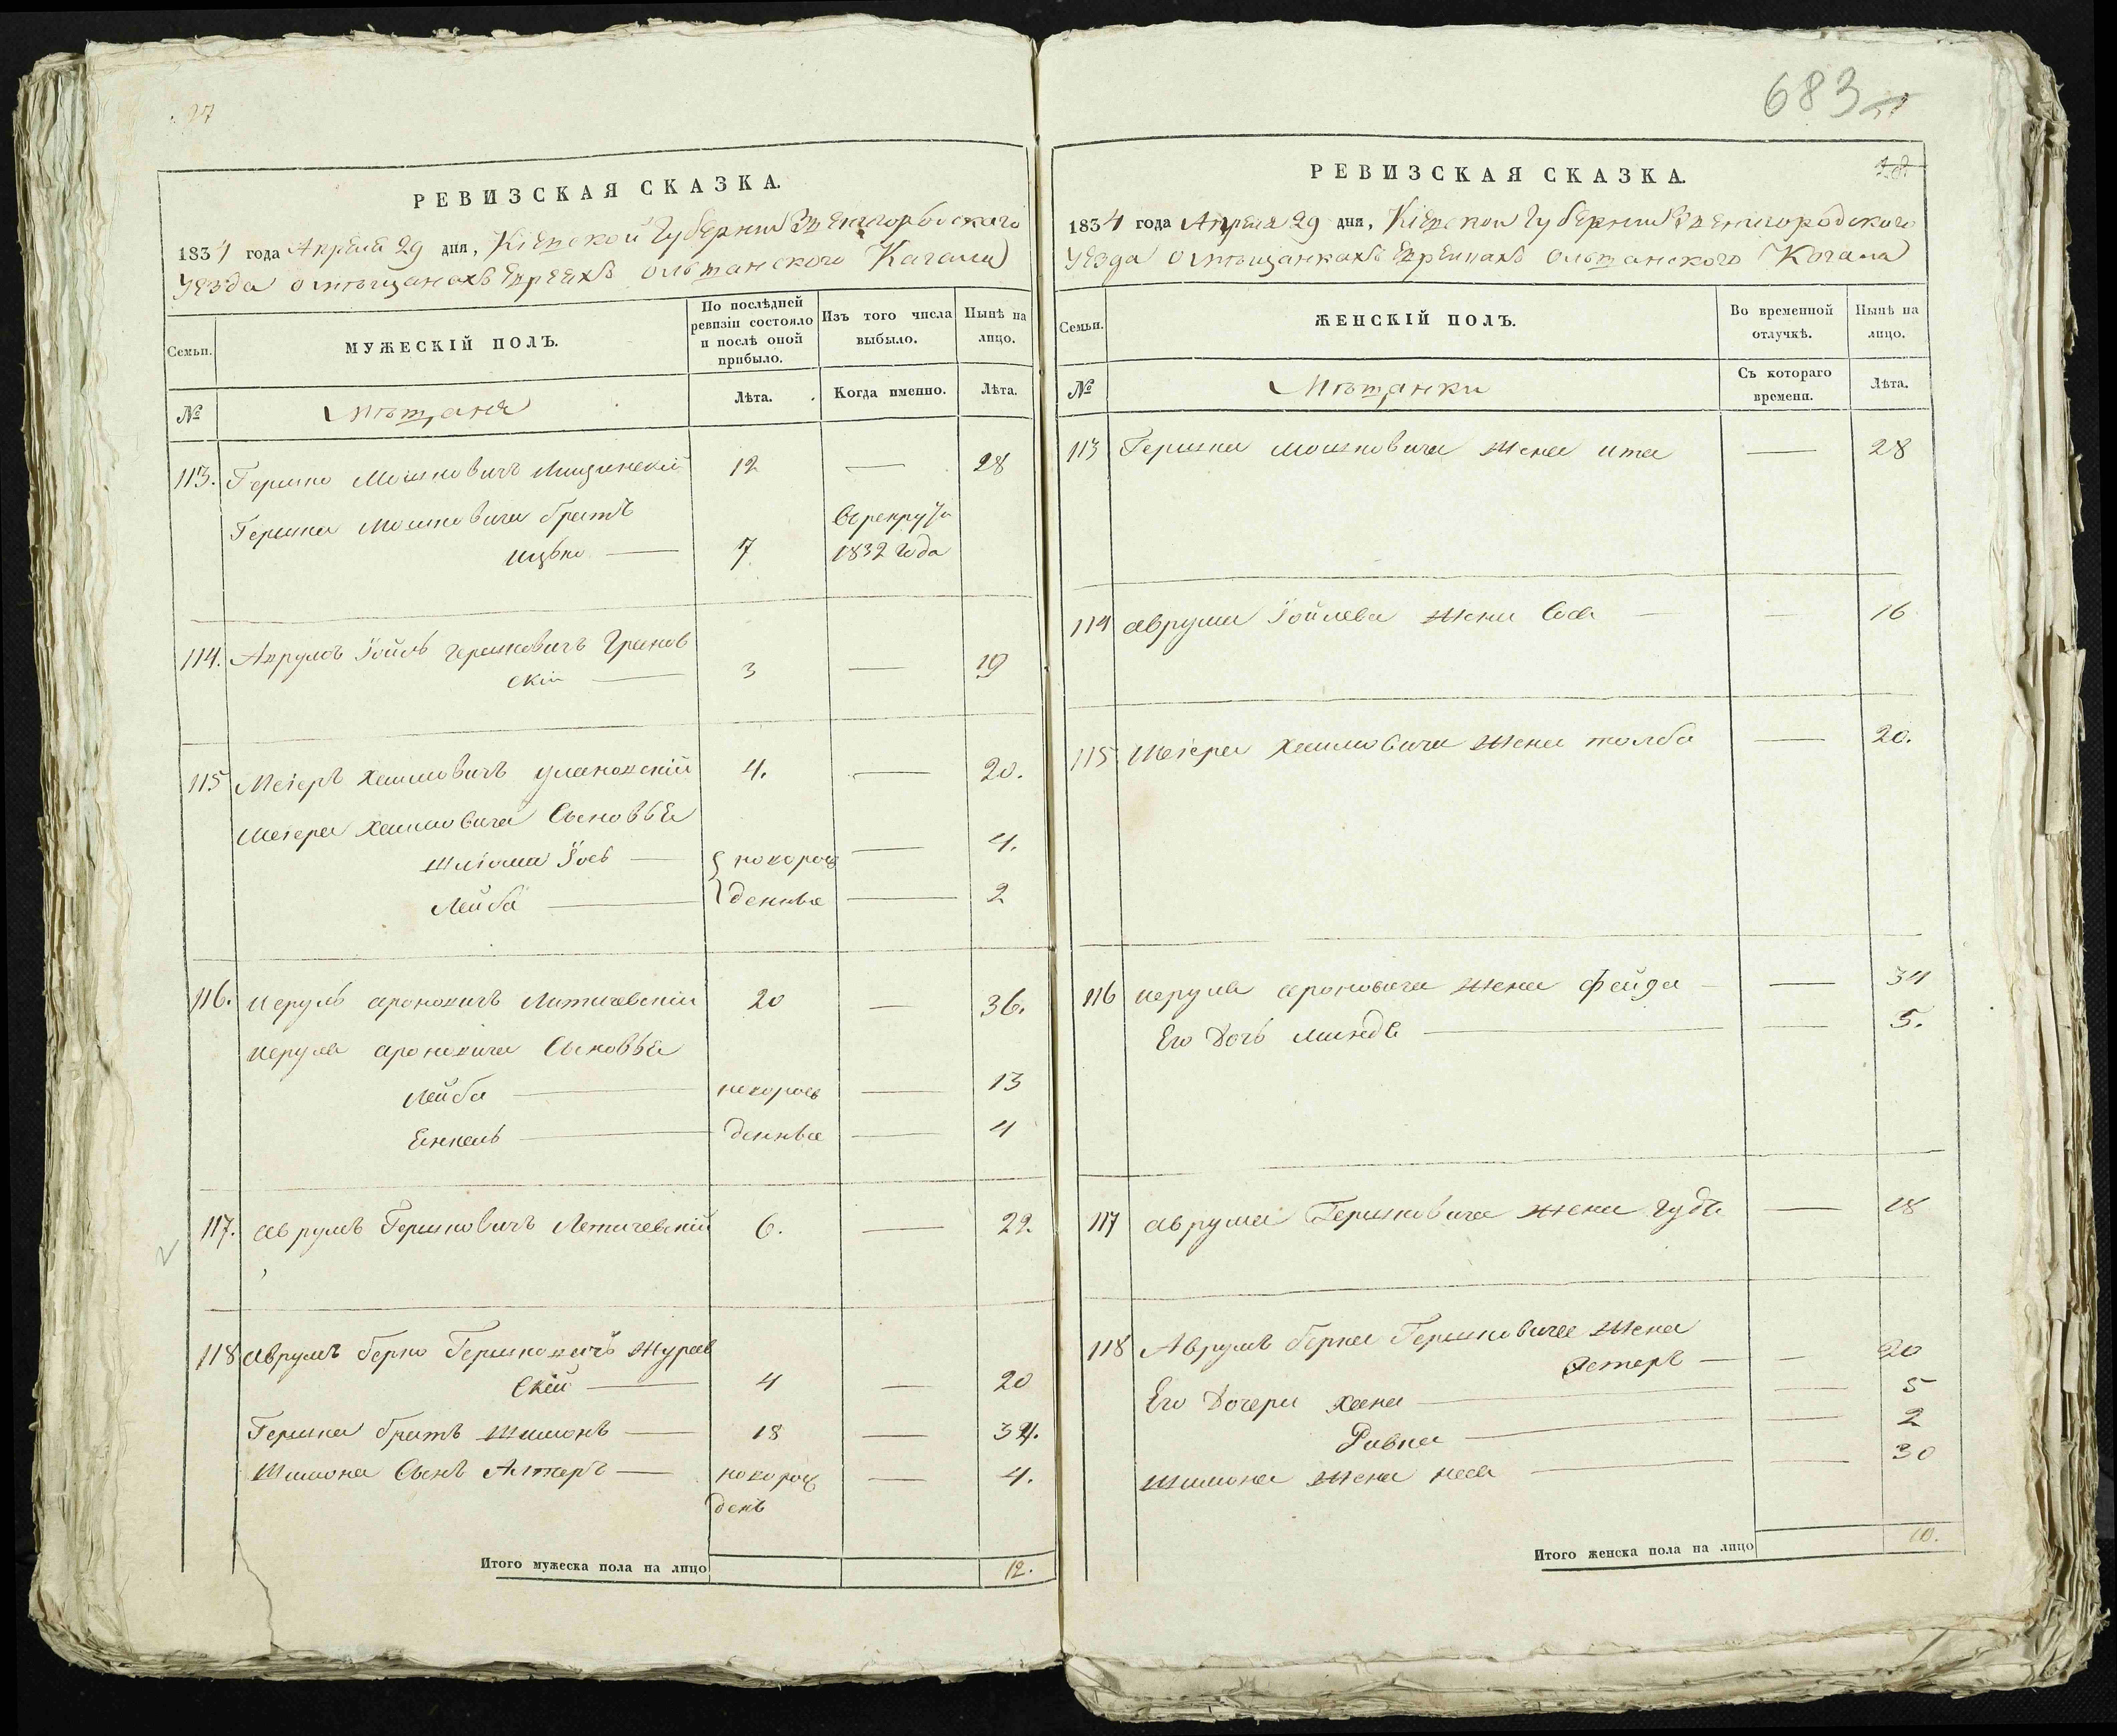 27
РЕВИЗСКАЯ СКАЗКА.
1834 года Апреля 29 дня, Кіевской Губерніи Звенигородского
Уезда о мѣщанахъ Евреяхъ Ольшанского Кагала
Семьи.
МУЖЕСКІЙ ПОЛЪ.
По послѣдней ревизіи состояло и послѣ оной прибыло.
Изъ того числа выбыло.
Нынѣ на лицо.
№
Мѣщаня
Лѣта.
Когда именно.
Лѣта.
113. Гершко Мошковичъ 12 — 28
Гершка Мошковича братъ
Ицко — 7 1832 года
114. Аврумъ Іойль Гершковичъ Гранов
скій — 3 — 19
115 Меіеръ Хаимовичъ Улановскій 4. — 20.
Меіера Хаимовича Сыновья
Шліома Іось — новорож — 4.
Лейба — денные — 2
116. Иеруль Ароновичъ Литичевскій 20 — 36.
Иеруля Ароновича Сыновья
Лейба — новорож — 13
Янкель — денные — 4
117. Аврумъ Гершковичъ Летичевскій 6. — 22.
118 Аврумъ Берко Гершковичъ Журав
скій — 4 — 20
Гершка братъ Шимонъ — 18 — 34.
Шимона Сынъ Алтеръ — новорож — 4.
денъ
Итого мужеска пола на лицо 12.
683
РЕВИЗСКАЯ СКАЗКА.
1834 года Апреля 29 дня, Кіевской Губерніи Звенигородского
Уезда о мѣщанкахъ Еврейкахъ Ольшанского Кагала
Семьи.
ЖЕНСКІЙ ПОЛЪ.
Во временной отлучкѣ.
Нынѣ на лицо.
№
Мѣщанки
Съ котораго времени.
Лѣта.
113 Гершка Мошковича жена Ита — 28
114 Аврума Іойлева жена Сося — — 16
115 Меіера Хаимовича жена Толба — 20.
116 Иеруля Ароновича жена Фейга — — 34
Его Дочь Минде — — 5.
117 Аврума Гершковича жена — 18
118 Аврумъ Берка Гершковича жена
Эстеръ — — 20
Его Дочери Хана — — 5
Ривка — — 2
Шимона жена Неся — — 30
Итого женска пола на лицо 10.